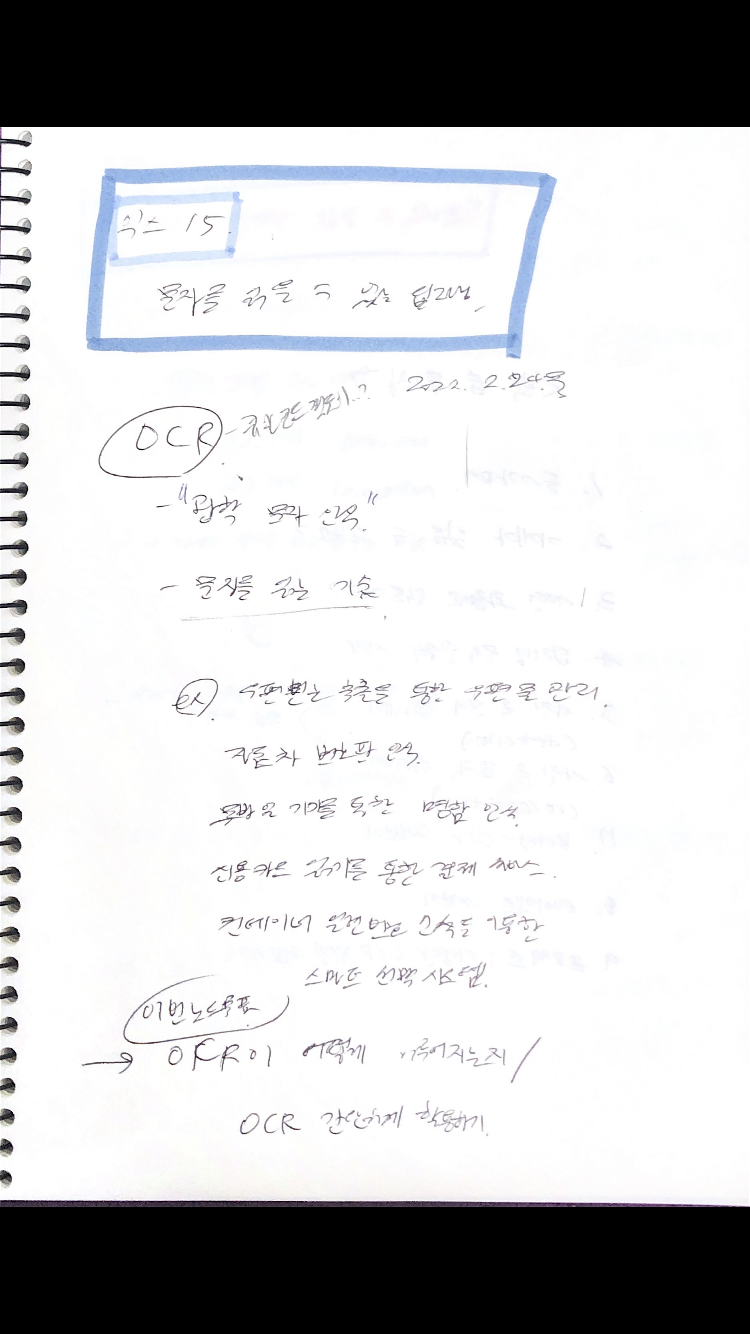 익스 15.
문자를 읽을 수 있는 딥러닝
OCR 2022. 2. 24. 목
- "광학 문자 인식."
- 문자를 읽는 기술.
ex) 우편번호 추출을 통한 우편물 관리.
자동차 번호판 인식.
기기를 통한 명함 인식.
신용카드 읽기를 통한 결제 서비스.
컨테이너 일련번호 인식을 이용한
스마트 선적 시스템.
이번 노드 목표
→ OCR이 어떻게 이루어지는지 /
OCR 간단하게 활용하기.